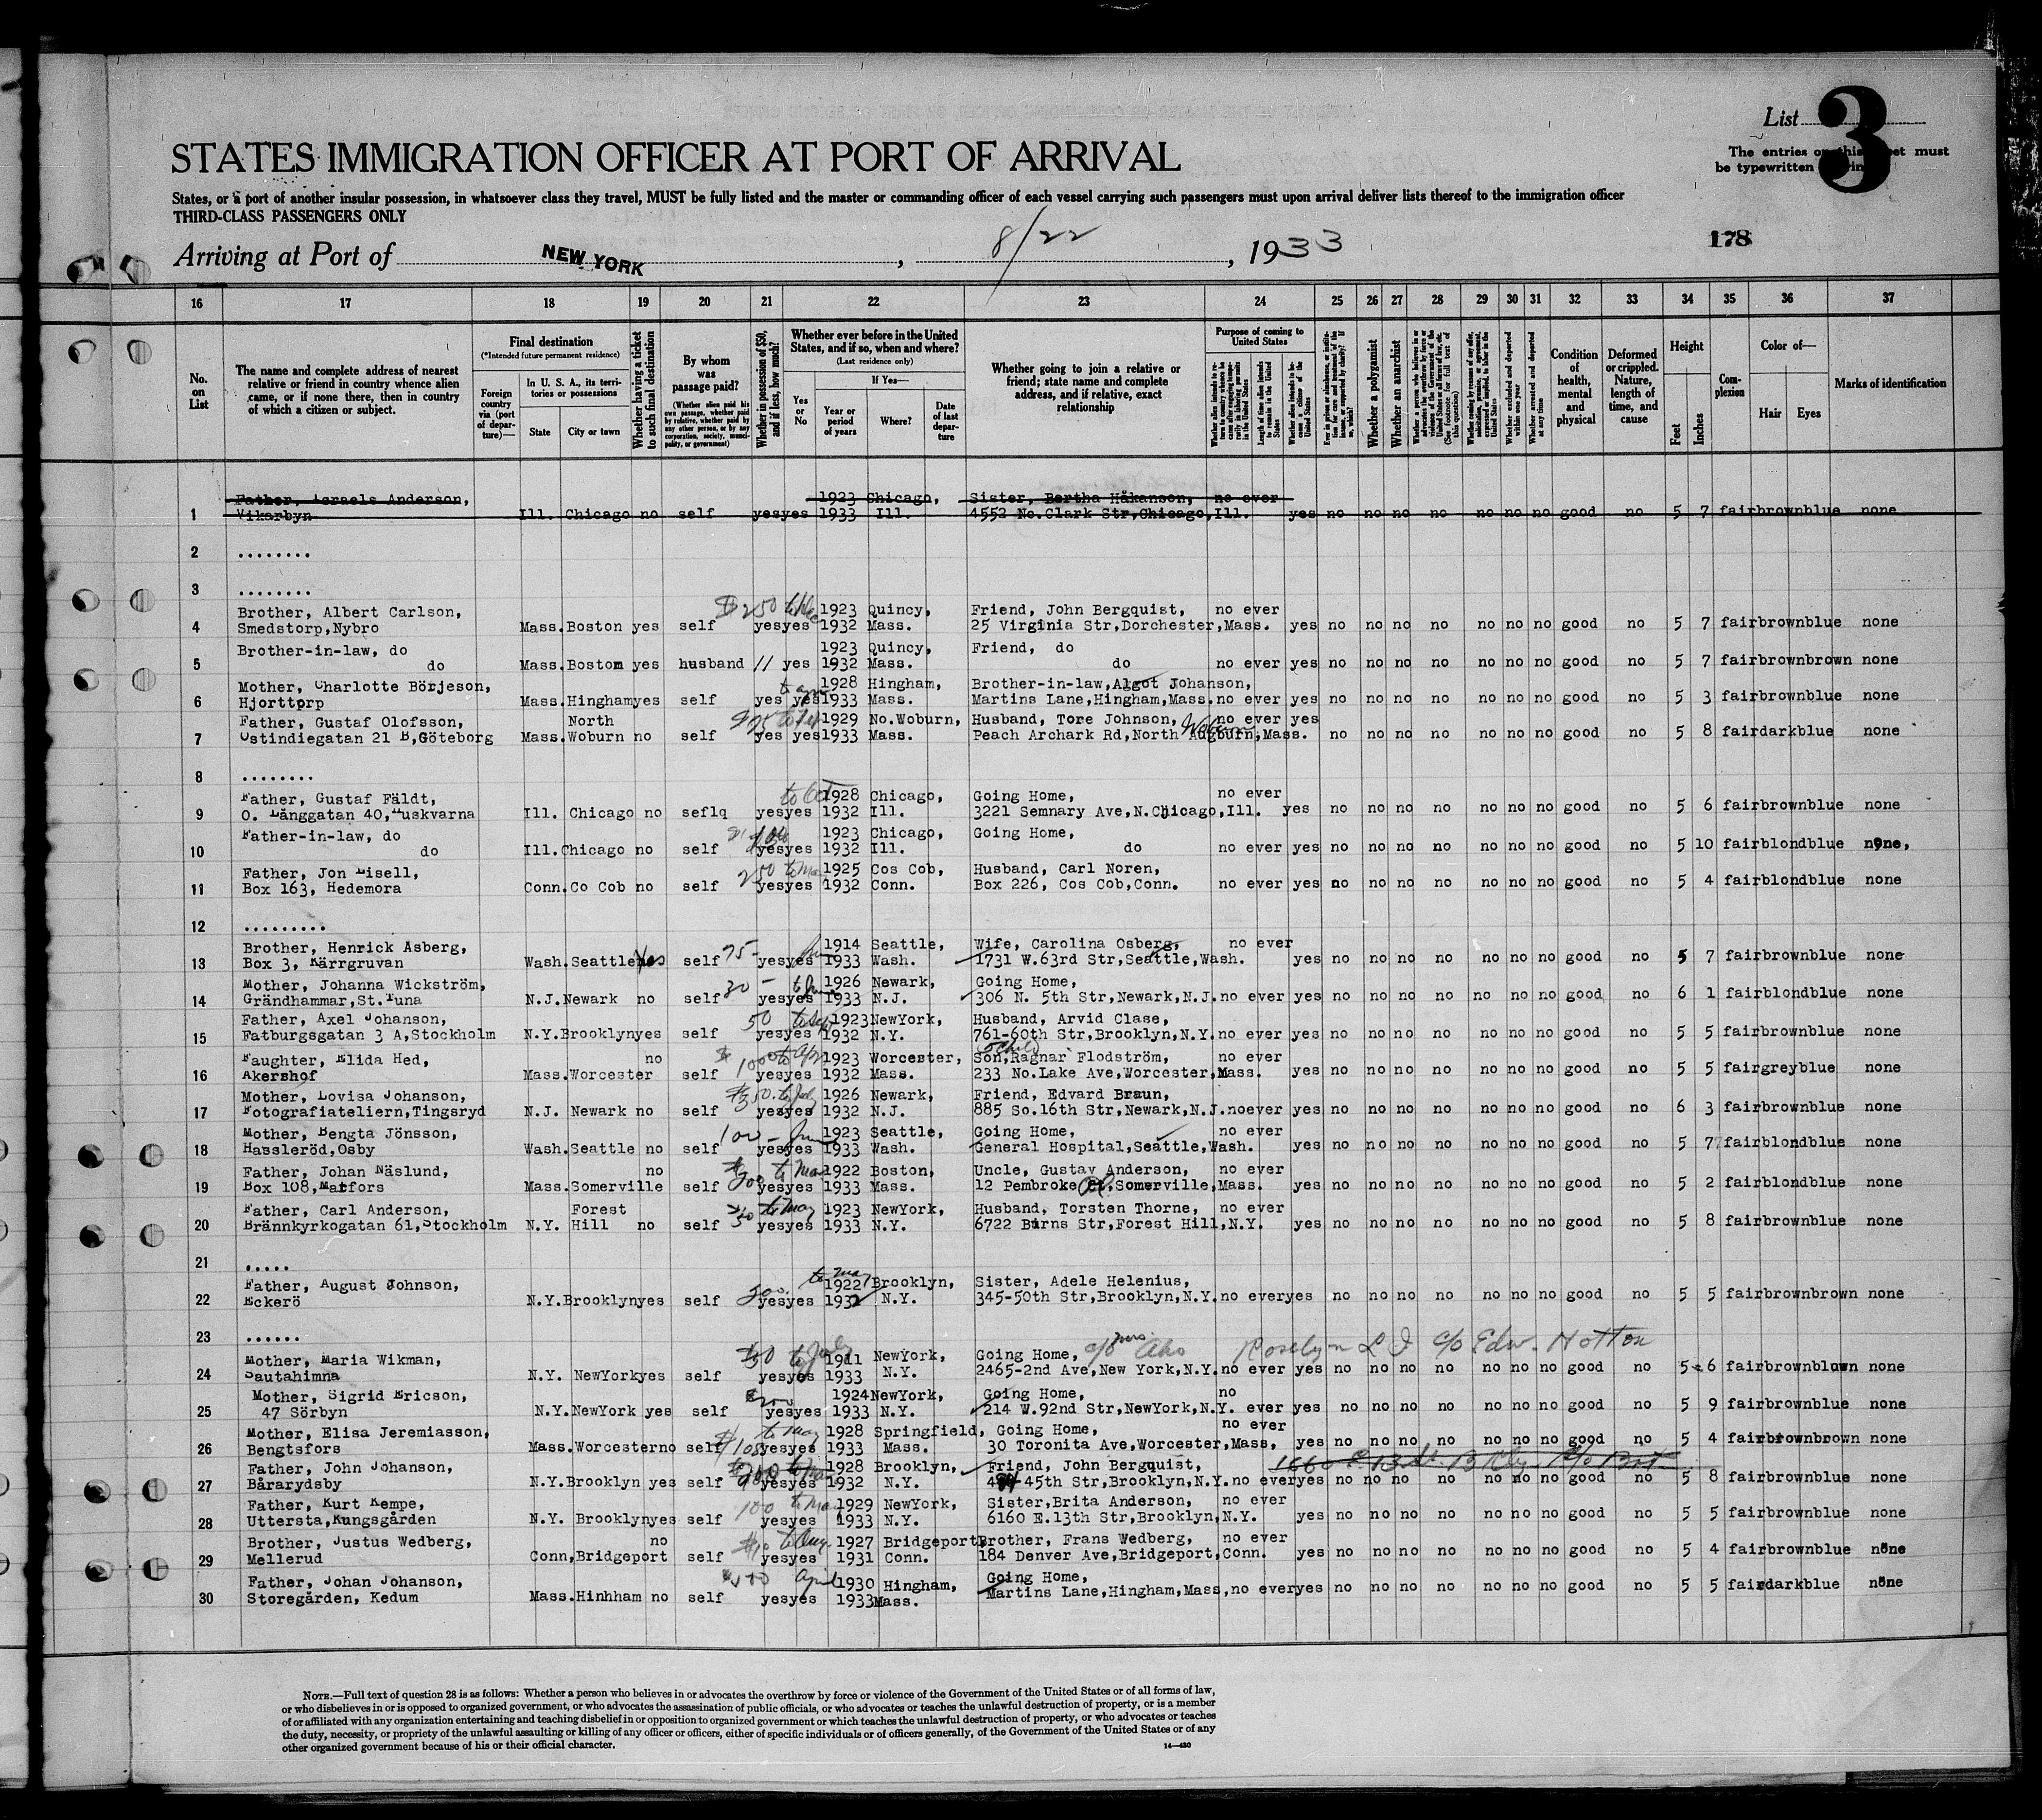 List 3
The entries on this sheet must
be typewritten
STATES IMMIGRATION OFFICER AT PORT OF ARRIVAL
States, or a port of another insular possession, in whatsoever class they travel, MUST be fully listed and the master or commanding officer of each vessel carrying such passengers must upon arrival deliver lists thereof to the immigration officer
THIRD-CLASS PASSENGERS ONLY
Arriving at Port of NEW YORK, 8/22, 1933
178
16 17 18 19 20 21 22 23 24 25 26 27 28 29 30 31 32 33 34 35 36 37
No. on List
The name and complete address of nearest relative or friend in country whence alien came, or if none there, then in country of which a citizen or subject.
Final destination
(*Intended future permanent residence)
Foreign country via (port of departure)—
In U. S. A., its territories or possessions
State
City or town
Whether having a ticket to such final destination
By whom was passage paid?
(Whether alien paid his own passage, whether paid by relative, whether paid by any other person, or by any corporation, society, municipality, or government)
Whether in possession of $50, and if less, how much?
Whether ever before in the United States, and if so, when and where?
(Last residence only)
Yes or No
If Yes—
Year or period of years
Where?
Date of last departure
Whether going to join a relative or friend; state name and complete address, and if relative, exact relationship
Purpose of coming to United States
Whether a polygamist
Whether an anarchist
Condition of health, mental and physical
Deformed or crippled. Nature, length of time, and cause
Height
Feet
Inches
Complexion
Color of—
Hair
Eyes
Marks of identification
Father, Israels Anderson, 1923 Chicago, Sister, Bertha Håkanson, no ever
1 Vikarbyn Ill. Chicago no self yes yes 1933 Ill. 4552 No.Clark Str,Chicago,Ill. yes no no no no no no no good no 5 7 fair brown blue none
2 ........
3 ........
Brother, Albert Carlson, $250 1923 Quincy, Friend, John Bergquist, no ever
4 Smedstorp,Nybro Mass. Boston yes self yes yes 1932 Mass. 25 Virginia Str,Dorchester,Mass. yes no no no no no no no good no 5 7 fair brown blue none
Brother-in-law, do 1923 Quincy, Friend, do
5 do Mass. Boston yes husband 11 yes 1932 Mass. do no ever yes no no no no no no no good no 5 7 fair brown brown none
Mother, Charlotte Börjeson, 1928 Hingham, Brother-in-law,Algot Johanson,
6 Hjorttorp Mass. Hingham yes self yes yes 1933 Mass. Martins Lane,Hingham,Mass. no ever yes no no no no no no no good no 5 3 fair brown blue none
Father, Gustaf Olofsson, North $25 1929 No.Woburn, Husband, Tore Johnson, no ever yes
7 Ostindiegatan 21 B,Göteborg Mass. Woburn no self yes yes 1933 Mass. Peach Archark Rd,North Augburn,Mass. no no no no no no no good no 5 8 fair dark blue none
8 ........
Father, Gustaf Fäldt, to Oct 1928 Chicago, Going Home, no ever
9 O. Långgatan 40,Huskvarna Ill. Chicago no seflq yes yes 1932 Ill. 3221 Semnary Ave,N.Chicago,Ill. yes no no no no no no no good no 5 6 fair brown blue none
Father-in-law, do 1923 Chicago, Going Home,
10 do Ill. Chicago no self yes yes 1932 Ill. do no ever yes no no no no no no no good no 5 10 fair blond blue none,
Father, Jon Lisell, 250 1925 Cos Cob, Husband, Carl Noren,
11 Box 163, Hedemora Conn. Co Cob no self yes yes 1932 Conn. Box 226, Cos Cob,Conn. no ever yes no no no no no no no good no 5 4 fair blond blue none
12 .........
Brother, Henrick Asberg, 75- 1914 Seattle, Wife, Carolina Osberg, no ever
13 Box 3, Kärrgruvan Wash. Seattle Yes self yes yes 1933 Wash. 1731 W.63rd Str,Seattle,Wash. yes no no no no no no no good no 5 7 fair brown blue none
Mother, Johanna Wickström, 30 - 1926 Newark, Going Home,
14 Grändhammar,St.Tuna N.J. Newark no self yes yes 1933 N.J. 306 N. 5th Str,Newark,N.J. no ever yes no no no no no no no good no 6 1 fair blond blue none
Father, Axel Johanson, 50 to Sept 1923 NewYork, Husband, Arvid Clase,
15 Fatburgsgatan 3 A,Stockholm N.Y. Brooklyn yes self yes yes 1932 N.Y. 761-60th Str,Brooklyn,N.Y. no ever yes no no no no no no no good no 5 5 fair brown blue none
Faughter, Elida Hed, no $1000 to Apr 1923 Worcester, Son,Ragnar Flodström, no ever
16 Akershof Mass. Worcester self yes yes 1932 Mass. 233 No.Lake Ave,Worcester,Mass. yes no no no no no no no good no 5 5 fair grey blue none
Mother, Lovisa Johanson, $350. to July 1926 Newark, Friend, Edvard Braun,
17 Fotografiateliern,Tingsryd N.J. Newark no self yes yes 1932 N.J. 885 So.16th Str,Newark,N.J. noever yes no no no no no no no good no 6 3 fair brown blue none
Mother, Bengta Jönsson, 100 - June 1923 Seattle, Going Home, no ever
18 Hassleröd,Osby Wash. Seattle no self yes yes 1933 Wash. General Hospital,Seattle,Wash. yes no no no no no no no good no 5 7 fair blond blue none
Father, Johan Näslund, no to Mar 1922 Boston, Uncle, Gustav Anderson, no ever
19 Box 108,Matfors Mass. Somerville self yes yes 1933 Mass. 12 Pembroke Pl.,Somerville,Mass. yes no no no no no no no good no 5 2 fair blond blue none
Father, Carl Anderson, Forest to May 1923 NewYork, Husband, Torsten Thorne, no ever
20 Brännkyrkogatan 61,Stockholm N.Y. Hill no self yes yes 1933 N.Y. 6722 Burns Str,Forest Hill,N.Y. yes no no no no no no no good no 5 8 fair brown blue none
21 .....
Father, August Johnson, to May 1922 Brooklyn, Sister, Adele Helenius,
22 Eckerö N.Y. Brooklyn yes self yes yes 1932 N.Y. 345-50th Str,Brooklyn,N.Y. no ever yes no no no no no no no good no 5 5 fair brown brown none
23 ......
c/o Mrs. Aho Roselyn L I c/o Edw. Hotton
Mother, Maria Wikman, to July 1911 NewYork, Going Home,
24 Sautahimna N.Y. NewYork yes self yes yes 1933 N.Y. 2465-2nd Ave,New York,N.Y. no ever yes no no no no no no no good no 5 6 fair brown blown none
Mother, Sigrid Ericson, 1924 NewYork, Going Home, no
25 47 Sörbyn N.Y. NewYork yes self yes yes 1933 N.Y. 214 W.92nd Str,NewYork,N.Y. ever yes no no no no no no no good no 5 9 fair brown blue none
Mother, Elisa Jeremiasson, to May 1928 Springfield, Going Home, no ever
26 Bengtsfors Mass. Worcester no self yes yes 1933 Mass. 30 Toronita Ave,Worcester,Mass, yes no no no no no no no good no 5 4 fair brown brown none
Father, John Johanson, 1928 Brooklyn, Friend, John Bergquist,
27 Bårarydsby N.Y. Brooklyn yes self yes yes 1932 N.Y. 45th Str,Brooklyn,N.Y. no ever yes no no no no no no no good no 5 8 fair brown blue none
Father, Kurt Kempe, 100 to Mar 1929 NewYork, Sister,Brita Anderson, no ever
28 Uttersta,Kungsgården N.Y. Brooklyn yes self yes yes 1933 N.Y. 6160 E.13th Str,Brooklyn,N.Y. yes no no no no no no no good no 5 5 fair brown blue none
Brother, Justus Wedberg, no $10 to Aug 1927 Bridgeport, Brother, Frans Wedberg, no ever
29 Mellerud Conn, Bridgeport self yes yes 1931 Conn. 184 Denver Ave,Bridgeport,Conn. yes no no no no no no no good no 5 4 fair brown blue none
Father, Johan Johanson, April 1930 Hingham, Going Home,
30 Storegården, Kedum Mass. Hinhham no self yes yes 1933 Mass. Martins Lane,Hingham,Mass, no ever yes no no no no no no no good no 5 5 fair dark blue none
NOTE.—Full text of question 28 is as follows: Whether a person who believes in or advocates the overthrow by force or violence of the Government of the United States or of all forms of law,
or who disbelieves in or is opposed to organized government, or who advocates the assassination of public officials, or who advocates or teaches the unlawful destruction of property, or is a member
of or affiliated with any organization entertaining and teaching disbelief in or opposition to organized government or which teaches the unlawful destruction of property, or who advocates or teaches
the duty, necessity, or propriety of the unlawful assaulting or killing of any officer or officers, either of specific individuals or of officers generally, of the Government of the United States or of any
other organized government because of his or their official character.
14—430